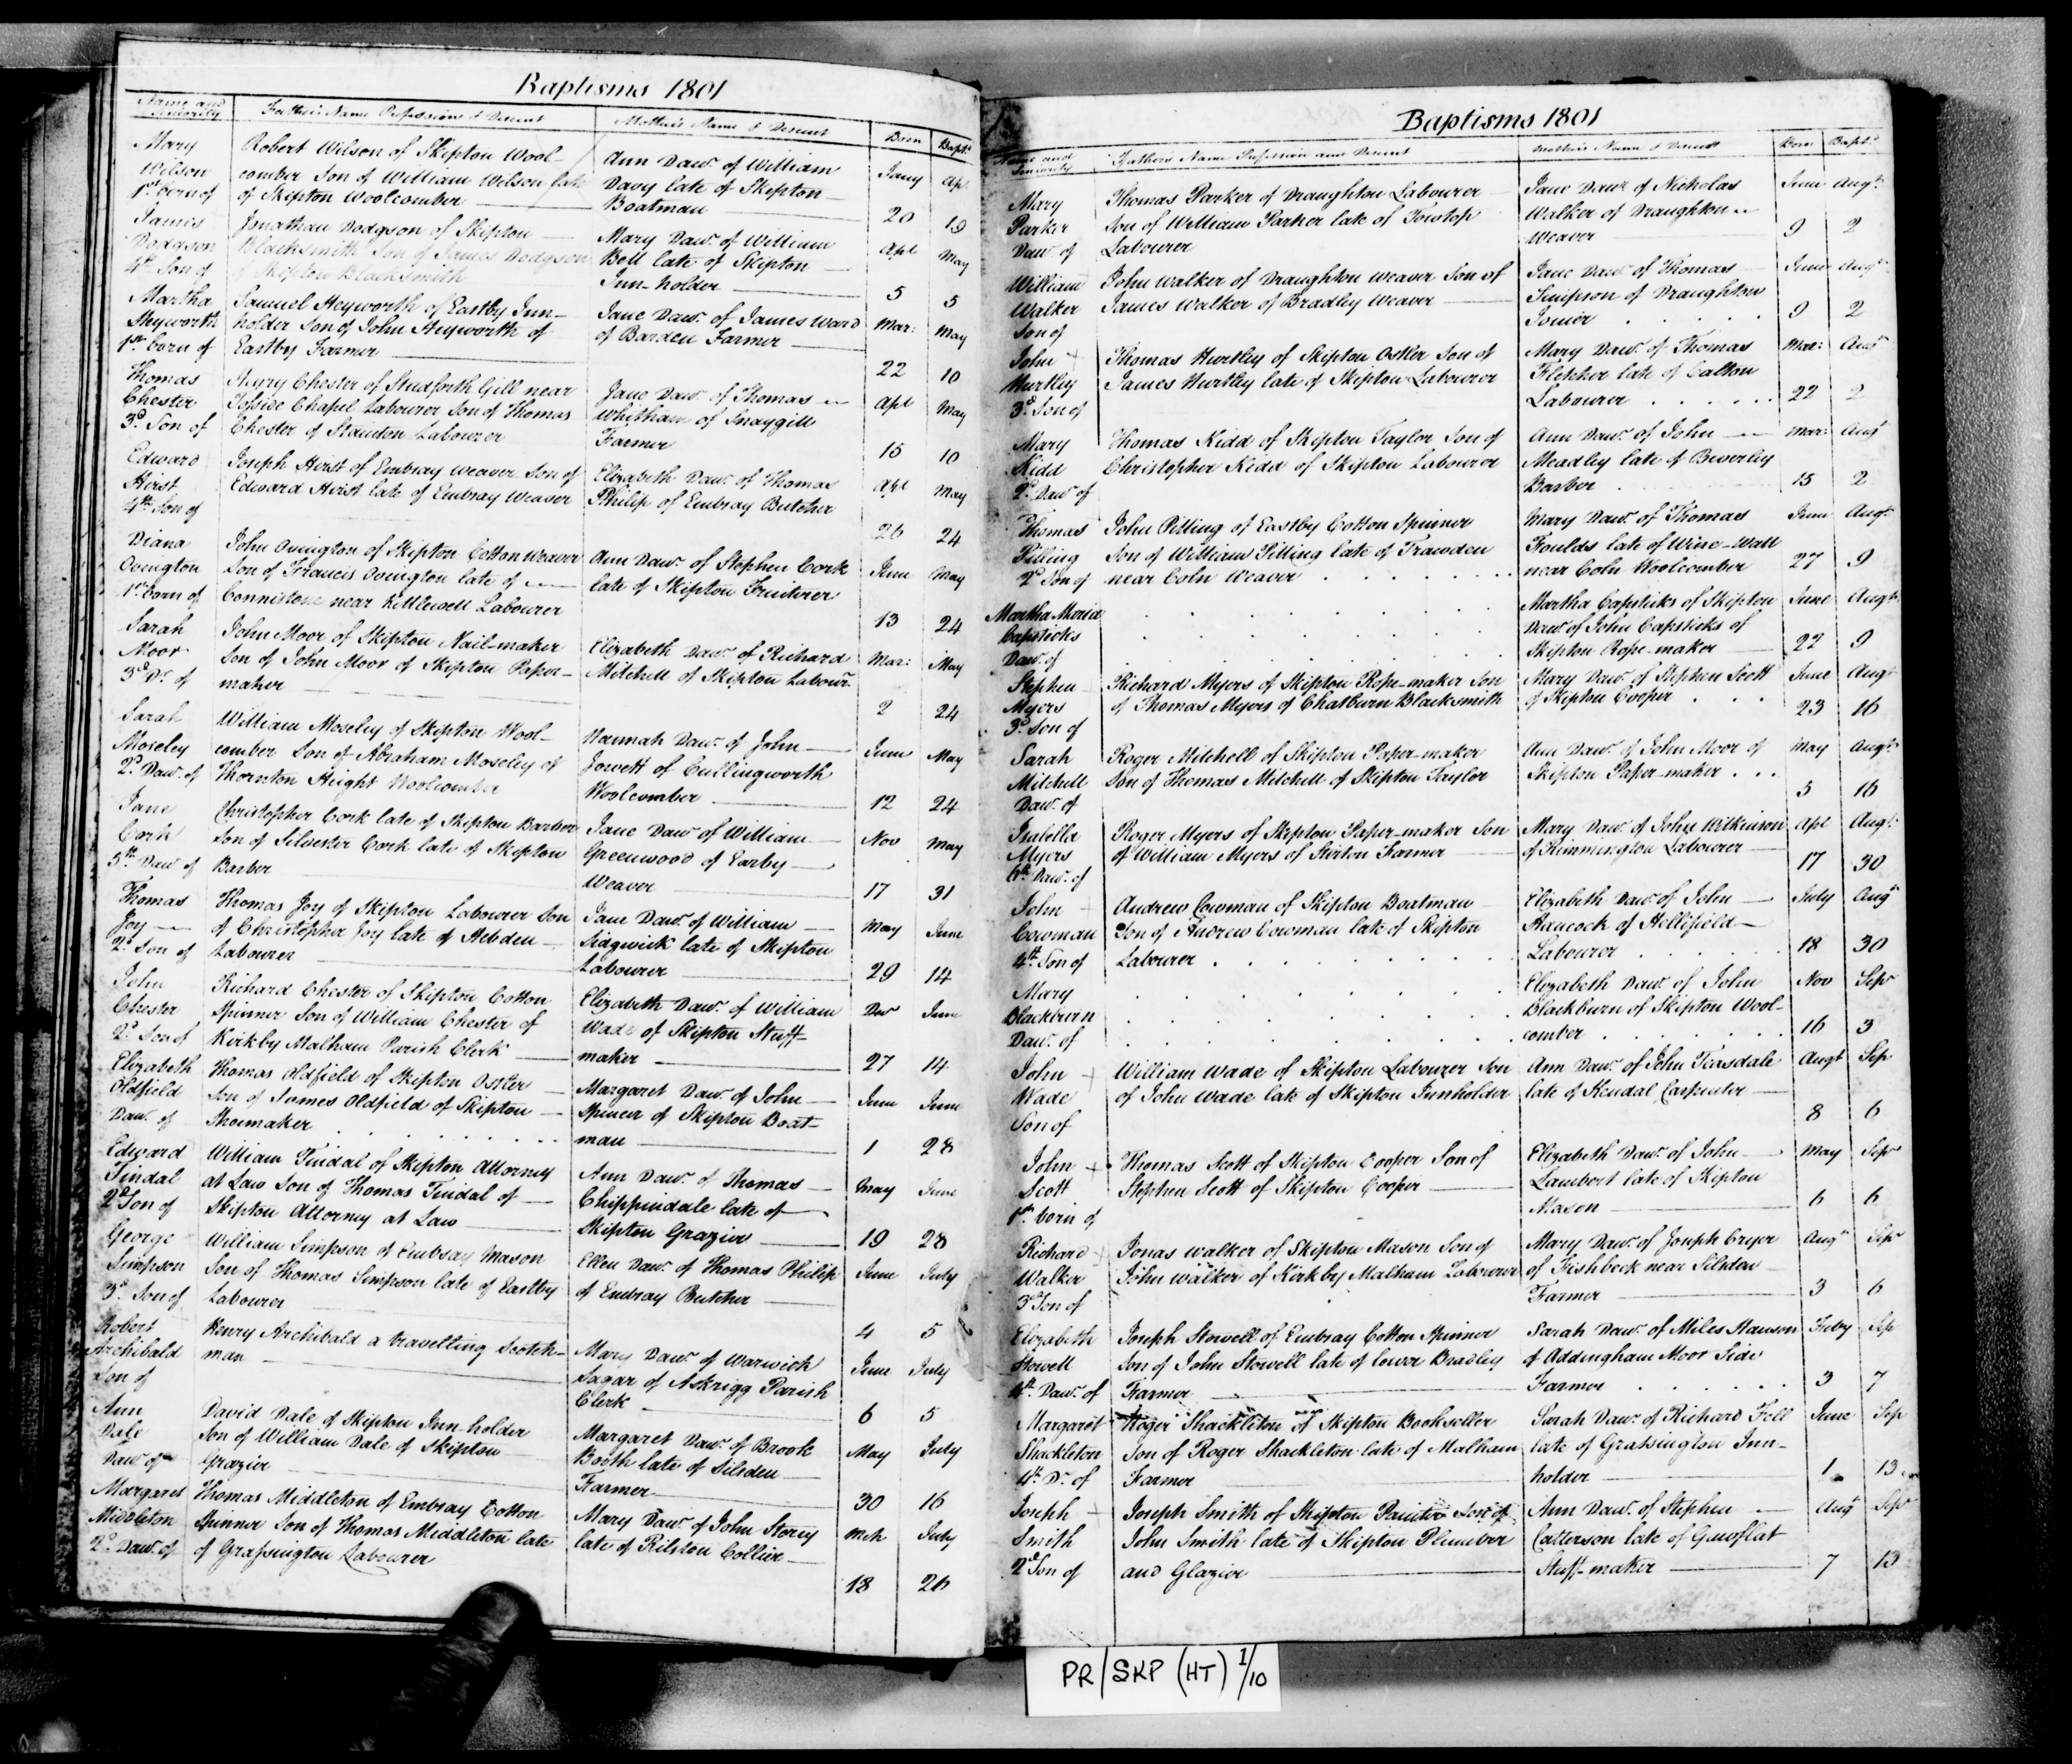 Baptisms 1801
Name and Seniority | Father's Name Profession & Descent | Mother's Name & Descent | Born | Bapt.d
Mary | Robert Wilson of Skipton Wool- | Ann Daur. of William | Jany | Apl
Wilson | comber Son of William Wilson late | Davy late of Skipton
1st. born of | of Skipton Woolcomber | Boatman | 20 | 19
James | Jonathan Dodgson of Skipton | Mary Daur. of William | Apl | May
Dodgson | Blacksmith Son of James Dodgson | Bell late of Skipton
4th. Son of | of Skipton Blacksmith | Inn-holder | 5 | 5
Martha | Samuel Heyworth of Eastby Inn- | Jane Daur. of James Ward | Mar: | May
Heyworth | holder Son of John Heyworth of | of Barden Farmer
1st. born of | Eastby Farmer | 22 | 10
Thomas | Henry Chester of Studforth Gill near | Jane Daur of Thomas | Apl | May
Chester | Chapel Labourer Son of Thomas | Whitham of Snaygill
3d. Son of | Chester of Stainton Labourer | Farmer | 15 | 10
Edward | Joseph Hirst of Embsay Weaver Son of | Elizabeth Daur. of Thomas | Apl | May
Hirst | Edward Hirst late of Embsay Weaver | Philip of Embsay Butcher
4th. Son of | 26 | 24
Diana | John Ovington of Skipton Cotton Weaver | Ann Daur. of Stephen Cork | June | May
Ovington | Son of Francis Ovington late of | late of Skipton Fruiterer
1st. born of | Connistone near Kettlewell Labourer | 13 | 24
Sarah | John Moor of Skipton Nail-maker | Elizabeth Daur. of Richard | Mar: | May
Moor | Son of John Moor of Skipton Paper- | Mitchell of Skipton Labourr.
3d. Dr. of | maker | 2 | 24
Sarah | William Moseley of Skipton Wool- | Hannah Daur. of John | June | May
Moseley | comber Son of Abraham Moseley of | Jowett of Cullingworth
2d. Daur. of | Thornton Height Woolcomber | Woolcomber | 12 | 24
Jane | Christopher Cork late of Skipton Barber | Jane Daur of William | Nov | May
Cork | Son of Silvester Cork late of Skipton | Greenwood of Earby
5th. Daur of | Barber | Weaver | 17 | 31
Thomas | Thomas Joy of Skipton Labourer Son | Jane Daur. of William | May | June
Joy | of Christopher Joy late of Hebden | Sidgwick late of Skipton
2d. Son of | Labourer | Labourer | 29 | 14
John | Richard Chester of Skipton Cotton | Elizabeth Daur. of William | Decr | June
Chester | Spinner Son of William Chester of | Wade of Skipton Stuff-
2d. Son of | Kirkby Malham Parish Clerk | maker | 27 | 14
Elizabeth | Thomas Oldfield of Skipton Ostler | Margaret Daur. of John | June | June
Oldfield | Son of James Oldfield of Skipton | Spencer of Skipton Boat-
Daur. of | Shoemaker | man | 1 | 28
Edward | William Tindal of Skipton Attorney | Ann Daur. of Thomas | May | June
Tindal | at Law Son of Thomas Tindal of | Chippindale late of
2d. Son of | Skipton Attorney at Law | Skipton Grazier | 19 | 28
George | William Simpson of Embsay Mason | Ellen Daur. of Thomas Philip | June | July
Simpson | Son of Thomas Simpson late of Eastby | of Embsay Butcher
3d. Son of | Labourer | 4 | 5
Robert | Henry Archibald a travelling Scotch- | Mary Daur. of Warwick | June | July
Archibald | man | Sagar of Askrigg Parish
Son of | Clerk | 6 | 5
Ann | David Dale of Skipton Inn-holder | Margaret Daur. of Brook | May | July
Dale | Son of William Dale of Skipton | Booth late of Silsden
Daur of | Grazier | Farmer | 30 | 16
Margaret | Thomas Middleton of Embsay Cotton | Mary Daur. of John Storey | Mch | July
Middleton | Spinner Son of Thomas Middleton late | late of Rilston Collier
2d. Daur. of | of Grassington Labourer | 18 | 26
Baptisms 1801
Name and Seniority | Father's Name Profession and Descent | Mother's Name & Descent | Born | Bapt.d
Mary | Thomas Parker of Draughton Labourer | Jane Daur. of Nicholas | June | Augt.
Parker | Son of William Parker late of Towtop | Walker of Draughton
Daur of | Labourer | Weaver | 9 | 2
William | John Walker of Draughton Weaver Son of | Jane Daur. of Thomas | June | Augt
Walker | James Walker of Bradley Weaver | Simpson of Draughton
Son of | Joiner | 9 | 2
John | Thomas Hurtley of Skipton Ostler Son of | Mary Daur. of Thomas | Mar: | Augt
Hurtley | James Hurtley late of Skipton Labourer | Fletcher late of Calton
3d. Son of | Labourer | 22 | 2
Mary | Thomas Kidd of Skipton Taylor Son of | Ann Daur. of John | Mar: | Augt
Kidd | Christopher Kidd of Skipton Labourer | Meadley late of Beverley
2d. Daur of | Barber | 15 | 2
Thomas | John Pilling of Eastby Cotton Spinner | Mary Daur. of Thomas | June | Augt.
Pilling | Son of William Pilling late of Trawden | Foulds late of Wine-Wall
2d. Son of | near Coln Weaver | near Coln Woolcomber | 27 | 9
Martha Maria | Martha Capsticks of Skipton | June | Augt.
Capsticks | Daur. of John Capsticks of
Daur. of | Skipton Rope-maker | 22 | 9
Stephen | Richard Myers of Skipton Rope-maker Son | Mary Daur. of Stephen Scott | June | Augt
Myers | of Thomas Myers of Chatburn Blacksmith | of Skipton Cooper | 23 | 16
3d. Son of
Sarah | Roger Mitchell of Skipton Paper-maker | Ann Daur. of John Moor of | May | Augt.
Mitchell | Son of Thomas Mitchell of Skipton Taylor | Skipton Paper-maker
Daur. of | 5 | 16
Isabella | Roger Myers of Skipton Paper-maker Son | Mary Daur. of John Wilkinson | Apl | Augt.
Myers | of William Myers of Stirton Farmer | of Rimmington Labourer
6th. Daur. of | 17 | 30
John | Andrew Cowman of Skipton Boatman | Elizabeth Daur. of John | July | Augt
Cowman | Son of Andrew Cowman late of Skipton | Hancock of Hellifield
4th. Son of | Labourer | Labourer | 18 | 30
Mary | Elizabeth Daur. of John | Nov | Sepr
Blackburn | Blackburn of Skipton Wool-
Daur. of | comber | 16 | 3
John | William Wade of Skipton Labourer Son | Ann Daur. of John Teasdale | Augt | Sep
Wade | of John Wade late of Skipton Innholder | late of Kendal Carpenter
Son of | 8 | 6
John | Thomas Scott of Skipton Cooper Son of | Elizabeth Daur. of John | May | Sepr
Scott | Stephen Scott of Skipton Cooper | Lambert late of Skipton
1st. born of | Mason | 6 | 6
Richard | Jonas Walker of Skipton Mason Son of | Mary Daur. of Joseph Cryer | Augt | Sepr
Walker | John Walker of Kirkby Malham Labourer | of Fishbeck near Silsden
3d. Son of | Farmer | 3 | 6
Elizabeth | Joseph Stowell of Embsay Cotton Spinner | Sarah Daur. of Miles Hawson | Feby | Sep
Stowell | Son of John Stowell late of lower Bradley | of Addingham Moor Side
4th. Daur. of | Farmer | Farmer | 3 | 7
Margaret | Roger Shackleton of Skipton Bookseller | Sarah Daur. of Richard Fell | June | Sep
Shackleton | Son of Roger Shackleton late of Malham | late of Grassington Inn-
4th. Dr. of | Farmer | holder | 1 | 13
Joseph | Joseph Smith of Skipton Painter Son of | Ann Daur. of Stephen | Augt | Sepr
Smith | John Smith late of Skipton Plumber | Catterson late of
2d. Son of | and Glazier | Stuff-maker | 7 | 13
PR/SKP (HT) 1/10